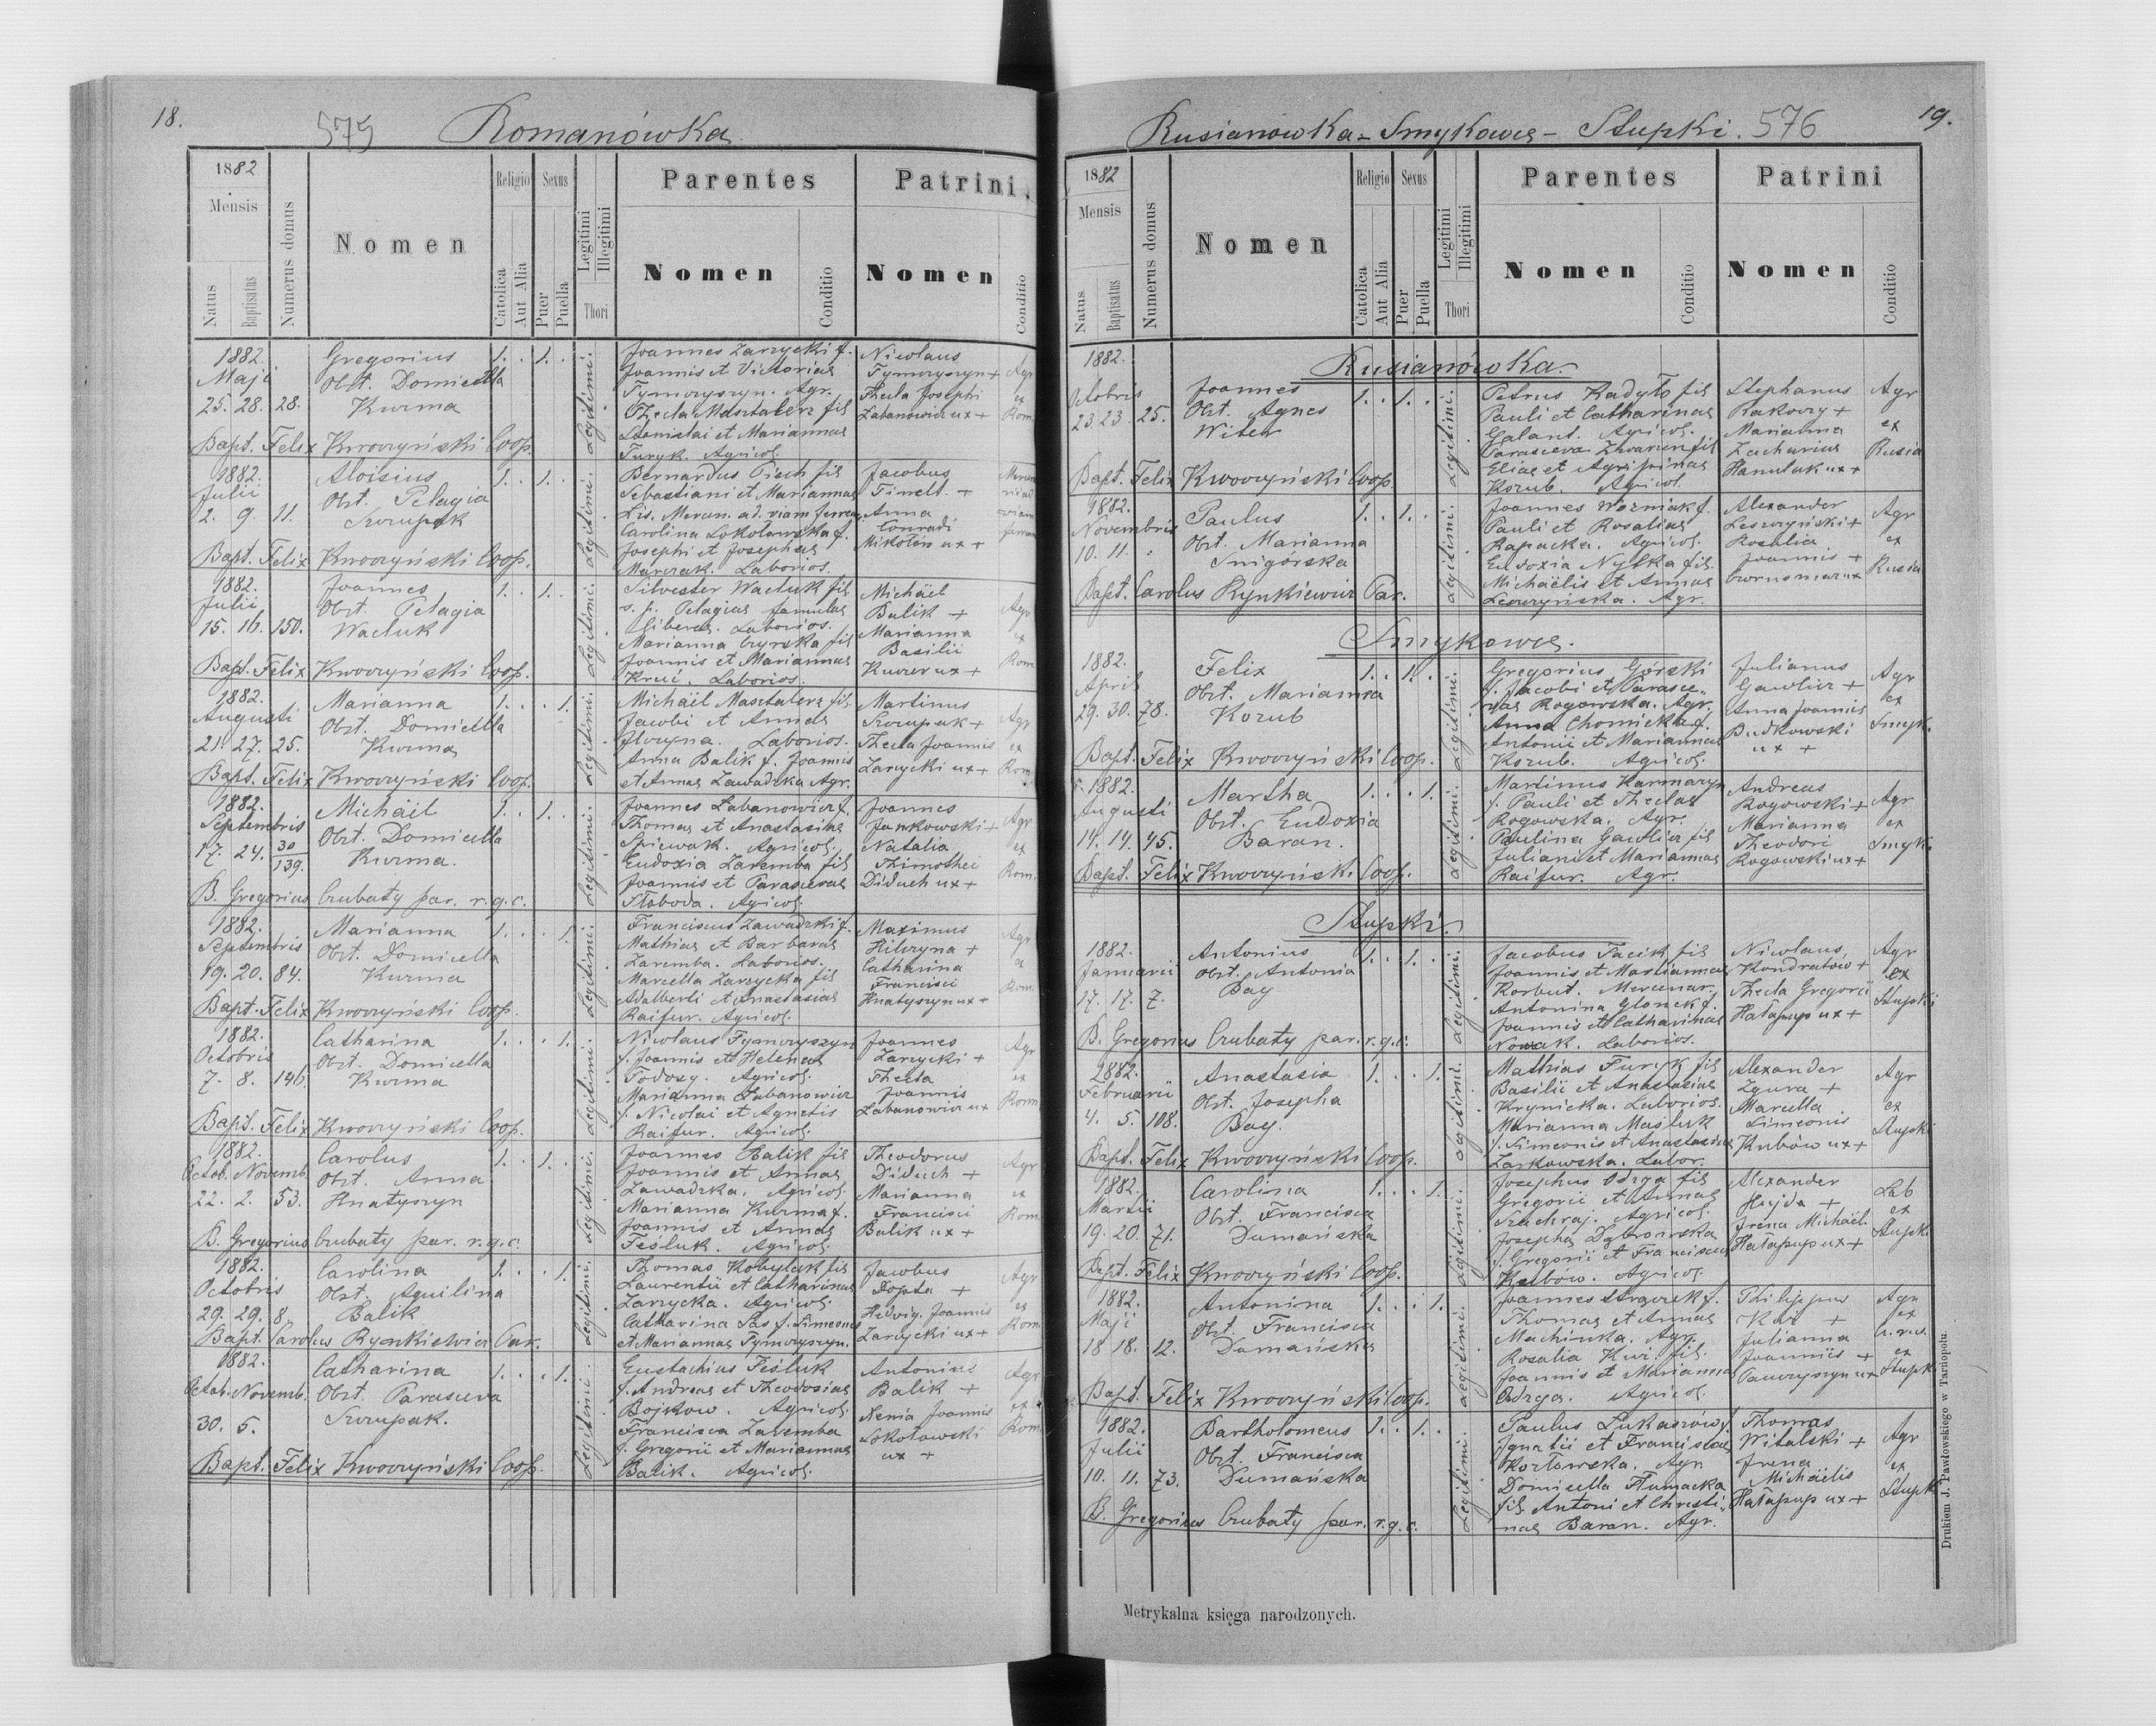 18.
575
Romanówka
1882
Mensis
Natus
Baptisatus
Numerus domus
Nomen
Religio
Catolica
Aut Alia
Sexus
Puer
Puella
Legitimi
Illegitimi
Thori
Parentes
Nomen
Conditio
Patrini
Nomen
Conditio
1882.
Maji
25. 28. 28.
Gregorius
Obst. Domicella
Kurma
1. 1.
Legitimi.
Joannes Zarzycki f.
Joannis et Victorias
Tymoryszyn. Agr.
Thecla Masztalerz fil
Stanislai et Mariannas
Furyk. Agricol.
Nicolaus
Tymoryszyn +
Thecla Josephi
Labanowicz ux +
Agr
ex
Rom
Bapt. Felix Kwoczyński Coop.
1882.
Julii
2. 9. 11.
Aloisius
Obst. Pelagia
Szczupak
1. 1.
Legitimi.
Bernardus Cisch fil
Sebastiani et Mariannas
Lis. Mercen. ad viam ferream
Carolina Sokołowska f.
Josephi et Josephas
Marczak. Laborios.
Jacobus
+
Anna
Conradi
Mikolów ux +
Bapt. Felix Kwoczyński Coop.
1882.
Julii
15. 16. 150.
Joannes
Obst. Pelagia
Wacluk
1. 1.
Legitimi.
Silvester Wacluk fil
s. p. Pelagias famulas
Laborios.
Marianna Cyrska fil
Joannis et Mariannas
Laborios.
Michäel
Balik +
Marianna
Basilii
Kuzev ux +
Agr
ex
Rom
Bapt. Felix Kwoczyński Coop.
1882.
Augusti
21. 27. 25.
Marianna
Obst. Domicella
Kurma
1. 1.
Legitimi.
Michäel Masztalerz fil.
Jacobi et Annas
Laborios.
Anna Balik f. Joannis
et Annas Zawadzka Agr.
Martinus
Szczupak +
Thecla Joannis
Zarzycki ux +
Agr
ex
Rom.
Bapt. Felix Kwoczyński Coop.
1882.
Septembris
17. 24. 30
139.
Michäel
Obst. Domicella
Kurma.
1. 1.
Legitimi.
Joannes Labanowicz f.
Thomas et Anastasias
Spiewak. Agricol.
Eudoxia Zaremba fil
Joannis et Parascevas
Słoboda. Agricol.
Joannes
Jankowski +
Natalia
Thimothei
Diduch ux +
Agr
ex
Rom.
B. Gregorius Czubaty par. r.g.c.
1882.
Septembris
19. 20. 84.
Marianna
Obst. Domicella
Kurma
1. 1.
Legitimi.
Franciscus Zawadzki f.
Mathias et Barbaras
Zaremba. Laborios.
Marcella Zarzycka fil
Adalberti et Anastasias
Raifur. Agricol.
Maximus
Hilczyna +
Catharina
Francisci
Hnatyszyn ux +
Agr
ex
Rom.
Bapt. Felix Kwoczyński Coop.
1882.
Octobris
7. 8. 146.
Catharina
Obst. Domicella
Kurma
1. 1.
Legitimi.
Nicolaus Tymoryszyn
f. Joannis et Helenas
Todosy. Agricol.
Marianna Labanowicz
f. Nicolai et Agnetis
Raifur. Agricol.
Joannes
Zarzycki +
Thecla
Joannis
Labanowicz ux +
Agr
ex
Rom.
Bapt. Felix Kwoczyński Coop.
1882.
Octob. Novemb.
22. 2. 53.
Carolus
Obst. Anna
Hnatyszyn
1. 1.
Legitimi.
Joannes Balik fil
Joannis et Annas
Zawadzka. Agricol.
Marianna Kurma f.
Joannis et Annas
Fesluk. Agricol.
Theodorus
Diduch +
Marianna
Francisci
Balik ux +
Agr
ex
Rom
B. Gregorius Czubaty par. r.g.c.
1882.
Octobris
29. 29. 8
Carolina
Obst. Aquilina
Balik
1. 1.
Legitimi.
Thomas Kobyluk fil
Laurentii et Catharinas
Zarzycka. Agricol.
Catharina Sas f. Simeonis
et Mariannas Tymoryszyn.
Jacobus
Dopta +
Hedvig. Joannis
Zarzycki ux +
Agr
ex
Rom
Bapt. Carolus Rynkiewicz Par.
1882.
Octob. Novemb.
30. 5.
Catharina
Obst. Parasceva
Szczupak.
1. 1.
Legitimi.
Eustachius Fesluk
f. Andreas et Theodosias
Bojkow. Agricol.
Francisca Zaremba
f. Gregorii et Mariannas
Balik. Agricol.
Antonius
Balik +
Xenia Joannis
Sokołowski
ux +
Agr
ex
Rom
Bapt. Felix Kwoczyński Coop.
19.
Rusianówka - Smykowce - Stupki. 576
1882
Mensis
Natus
Baptisatus
Numerus domus
Nomen
Religio
Catolica
Aut Alia
Sexus
Puer
Puella
Legitimi
Illegitimi
Thori
Parentes
Nomen
Conditio
Patrini
Nomen
Conditio
Rusianówka.
1882.
Octobris
23. 23. 25.
Joannes
Obst. Agnes
Witer
1. 1.
Legitimi.
Petrus Radyło fil
Pauli et Catharinas
Galant. Agricol.
Parasceva fil
Eliae et Agrippinas
Kozub. Agricol.
Stephanus
Rakoczy +
Marianna
Zacharius
Hanuluk ux +
Agr
ex
Rusia
Bapt. Felix Kwoczyński Coop.
1882.
Novembris
10. 11.
Paulus
Obst. Marianna
Snigórska
1. 1.
Legitimi.
Joannes Wozniak f.
Pauli et Rosalias
Rapacka. Agricol.
Eudoxia Nytka fil.
Michäelis et Annas
Leszczyńska. Agr.
Alexander
Leszczyński +
Rosalia
Joannis +
ux
Agr
ex
Rusia
Bapt. Carolus Rynkiewicz Par.
Smykowce.
1882.
April
29. 30. 78.
Felix
Obst. Marianna
Kozub
1. 1.
Legitimi.
Gregorius Górski
f. Jacobi et Parasce-
vas Rogowska. Agr.
Anna Chomicka f.
Antonii et Mariannas
Kozub. Agricol.
Julianus
Gawlier +
Anna Joannis
Budkowski
ux +
Agr
ex
Smyk.
Bapt. Felix Kwoczyński Coop.
1882.
Augusti
14. 14. 45.
Martha
Obst. Eudoxia
Baran.
1. 1.
Legitimi.
Martinus Karmazyn
f. Pauli et Theclas
Rogowska. Agr.
Paulina Gawlier fil
Juliani et Mariannas
Raifur. Agr.
Andreas
Rogowski +
Marianna
Theodori
Rogowski ux +
Agr
ex
Smyk.
Bapt. Felix Kwoczyński. Coop.
Stupki.
1882.
Januarii
17. 17. 7.
Antonius
Obst. Antonia
Bay
1. 1.
Legitimi.
Jacobus Tacik fil
Joannis et Mariannas
Korbut. Mercenar.
Antonina Glonek f.
Joannis et Catharinas
Nowak. Laborios.
Nicolaus
Kondratów +
Thecla Gregorii
Hałapup ux +
Agr
ex
Stupki
B. Gregorius Czubaty par. r.g.c.
1882.
Februarii
4. 5. 108.
Anastasia
Obst. Josepha
Bay.
1. 1.
Legitimi.
Mathias Furyk fil
Basilii et Anastasias
Krynicka. Laborios.
Marianna Masluk
f. Simeonis et Anastasias
Zarkowska. Labor.
Alexander
Zgura +
Marcella
Simeonis
Kubów ux +
Agr
ex
Stupki
Bapt. Felix Kwoczyński Coop.
1882.
Martii
19. 20. 71.
Carolina
Obst. Francisca
Dumańska
1. 1.
Legitimi.
Josephus Odrga fil
Gregorii et Annas
Szachraj. Agricol.
Josepha Dąbrowska
f. Gregorii et Franciscas
Kubow. Agricol.
Alexander
Hujda +
Irena Michäel.
Hałapup ux +
Lab
ex
Stupki
Bapt. Felix Kwoczyński Coop.
1882.
Maji
18 18. 12.
Antonina
Obst. Francisca
Dumańska
1. 1.
Legitimi.
Joannes f.
Thomas et Annas
Machinka. Agr.
Rosalia Kwi. fil.
Joannis et Marianna
Odrga. Agricol.
Philippus
Kwi +
Julianna
Joannis +
ux
Agr
ex
Stupk
Bapt. Felix Kwoczyński Coop.
1882.
Julii
10. 11. 73.
Bartholomeus
Obst. Francisca
Dumańska
1. 1.
Legitimi.
Paulus Lukaszów f.
Ignatii et Franciscas
Kozłowska. Agr
Domicella Tłumacka
fil. Antoni et Christi-
nas Baran. Agr.
Thomas
Witalski +
Irena
Michäelis
Hałapup ux +
Agr
ex
Stupki
B. Gregorius Czubaty par. r.g.c.
Metrykalna księga narodzonych.
Drukiem J. Pawłowskiego w Tarnopolu.